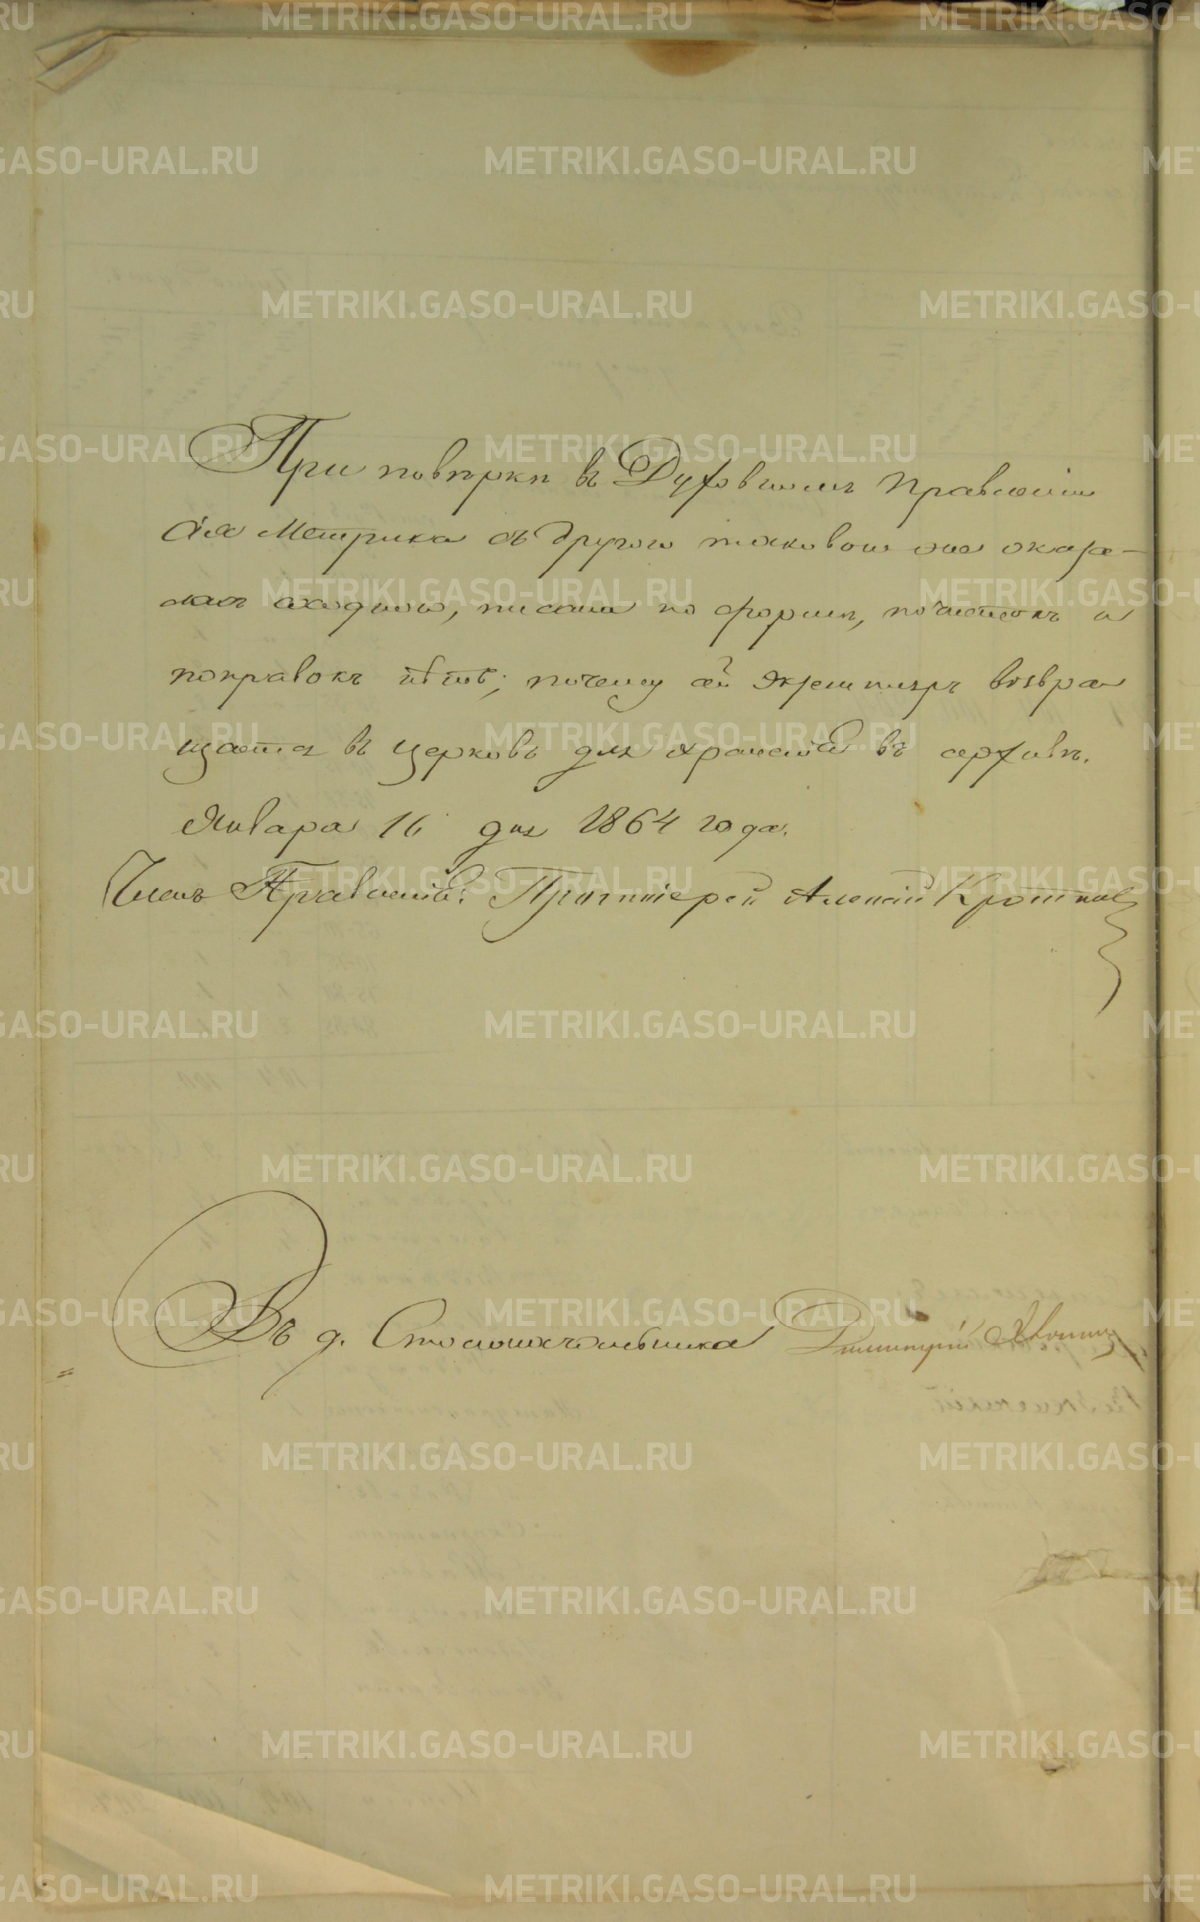 При повѣркѣ въ Духовномъ Правленіи
сія Метрика съ другою таковою же оказа-
лась сходною, писана по формѣ, почистокъ и
поправокъ нѣтъ; почему сей экземпляръ возвра
щается въ церковь для храненія въ архивѣ.
Января 16 дня 1864 года.
Членъ Правленія: Протоіерей Алексій Кротковъ
Въ д. Столоначальника Димитрій
METRIKI.GASO-URAL.RU